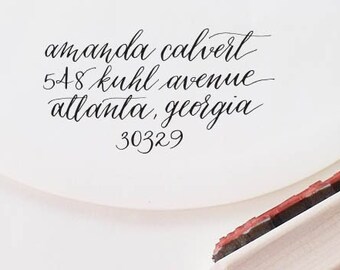 amanda calvert
548 kuhl avenue
atlanta, georgia
30329